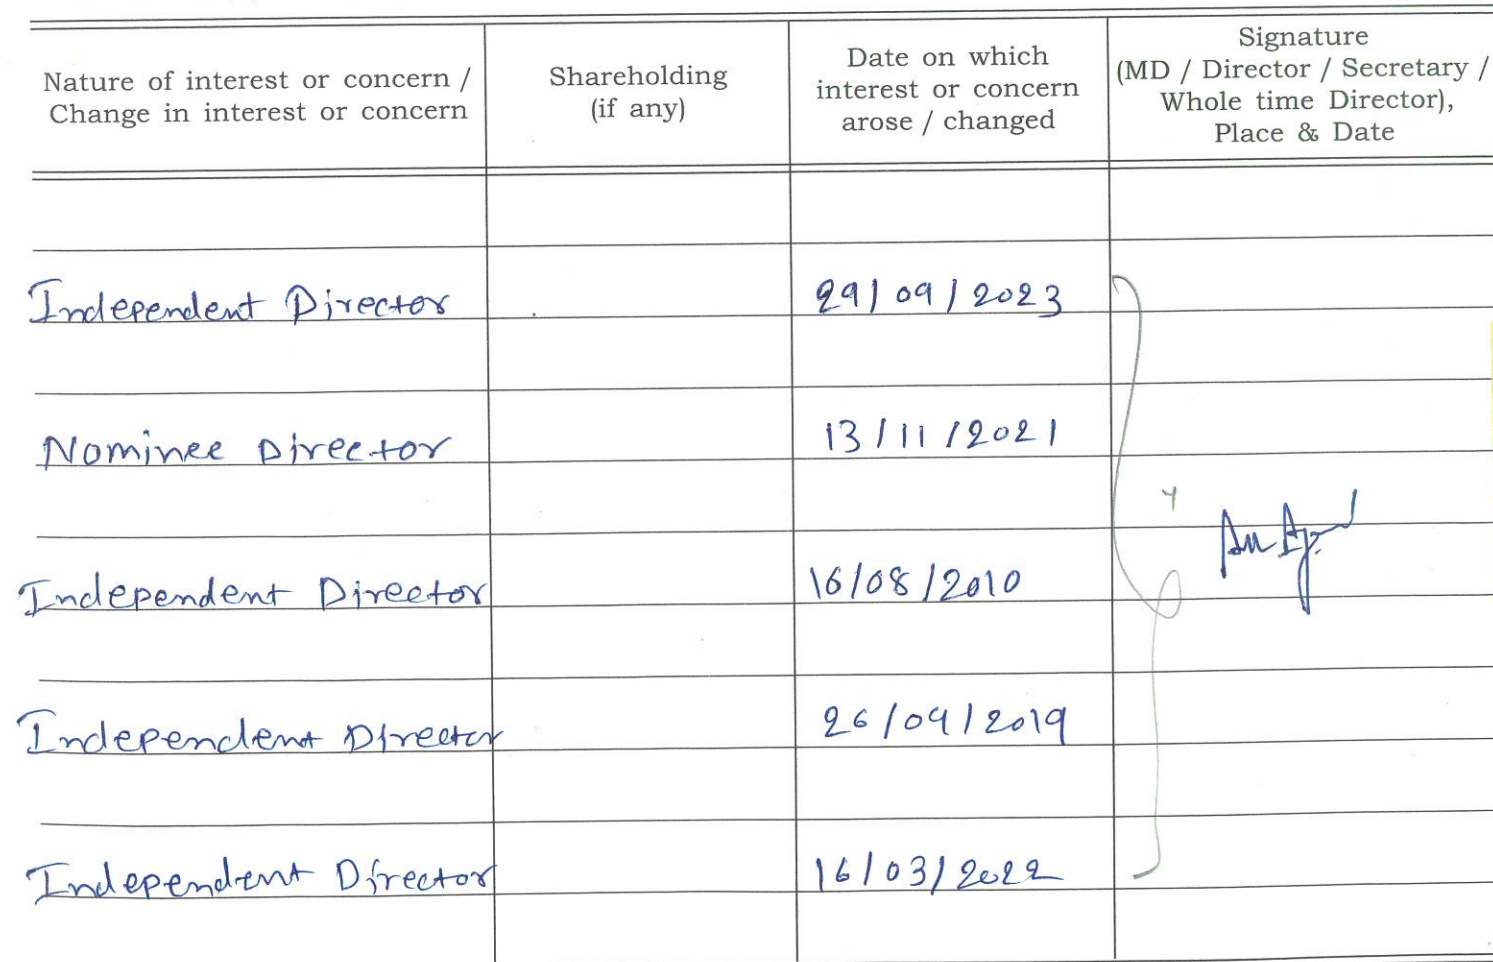 Nature of interest or concern /
Change in interest or concern
Shareholding
(if any)
Date on which
interest or concern
arose / changed
Signature
(MD / Director / Secretary /
Whole time Director),
Place & Date
Independent Director 29/09/2023
Nominee Director 13/11/2021
Independent Director 16/08/2010
Independent Director 26/09/2019
Independent Director 16/03/2022